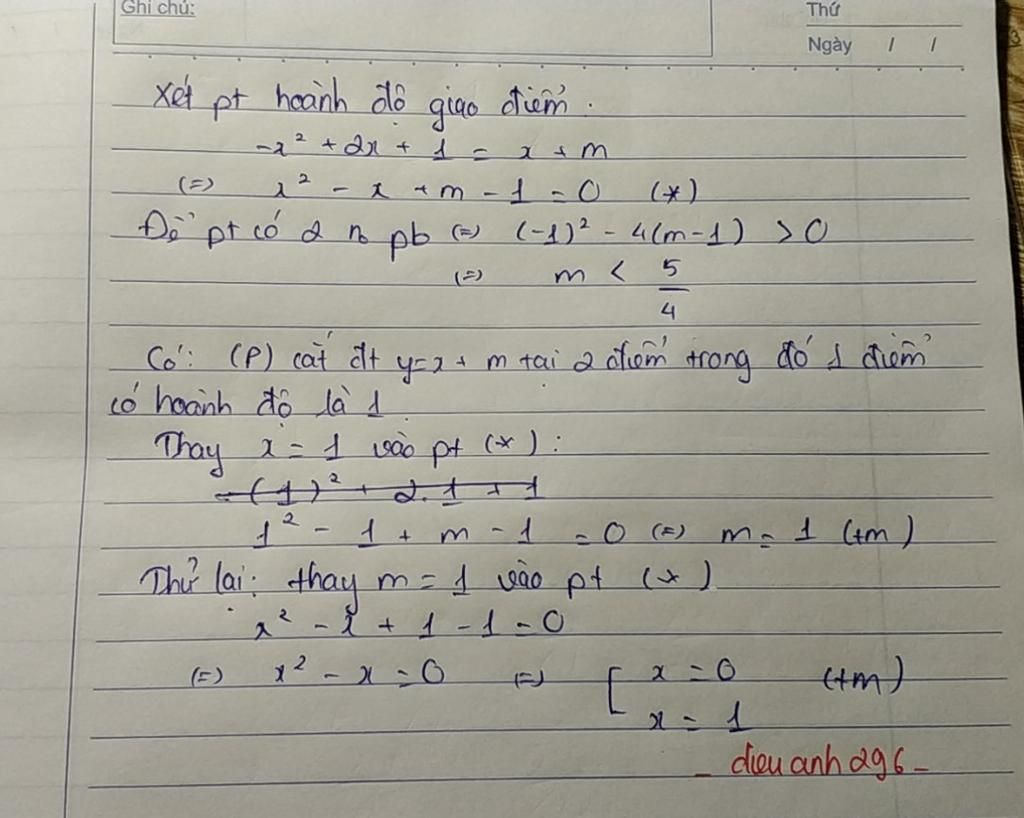 Ghi chú:
Thứ
Ngày / /
Xét pt hoành độ giao điểm.
-x² + 2x + 1 = x + m
(=) x² - x + m - 1 = 0 (*)
Để pt có 2 n₀ pb (=) (-1)² - 4(m-1) > 0
(=) m < 5/4
Có: (P) cắt đt y=x + m tại 2 điểm trong đó 1 điểm
có hoành độ là 1
Thay x = 1 vào pt (*):
-(1)² + 2.1 + 1
1² - 1 + m - 1 = 0 (=) m = 1 (tm)
Thử lại: thay m = 1 vào pt (*)
x² - x + 1 - 1 = 0
(=) x² - x = 0 (=) [ x = 0 (tm)
x = 1
- dieuanh296 -